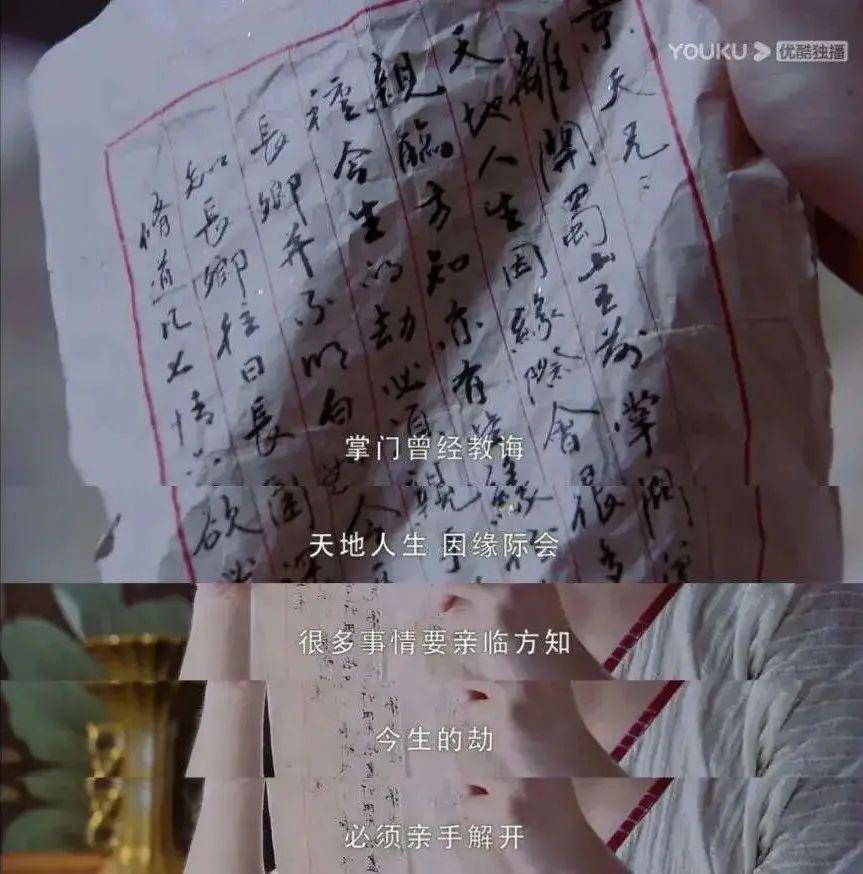 YOUKU 优酷独播
景天兄：
離開蜀山之前掌門
天地人生因緣際會很多
親臨方知亦有
種今生的劫必須親手
長卿并不明白
長卿往日長
修道凡七情六欲
掌门曾经教诲
天地人生 因缘际会
很多事情要亲临方知
今生的劫
必须亲手解开